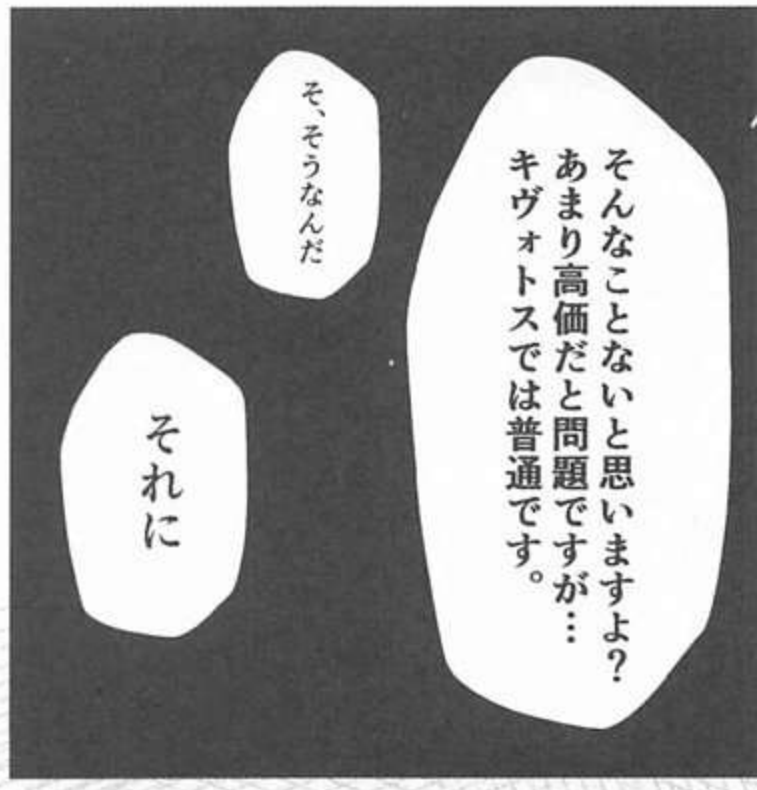 そんなことないと思いますよ?
あまり高価だと問題ですが…
キヴォトスでは普通です。
そ、そうなんだ
それに